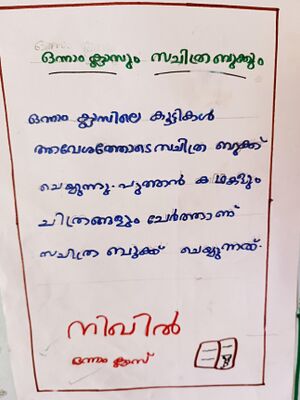 ഒന്നാം ക്ലാസും സചിത്ര ബുക്കും
ഒന്നാം ക്ലാസിലെ കുട്ടികൾ
ആവേശത്തോടെ സചിത്ര ബുക്ക്
ചെയ്യുന്നു. പുത്തൻ കഥകളും
ചിത്രങ്ങളും ചേർത്താണ്
സചിത്ര ബുക്ക് ചെയ്യുന്നത്.
നിഖിൽ
ഒന്നാം ക്ലാസ്